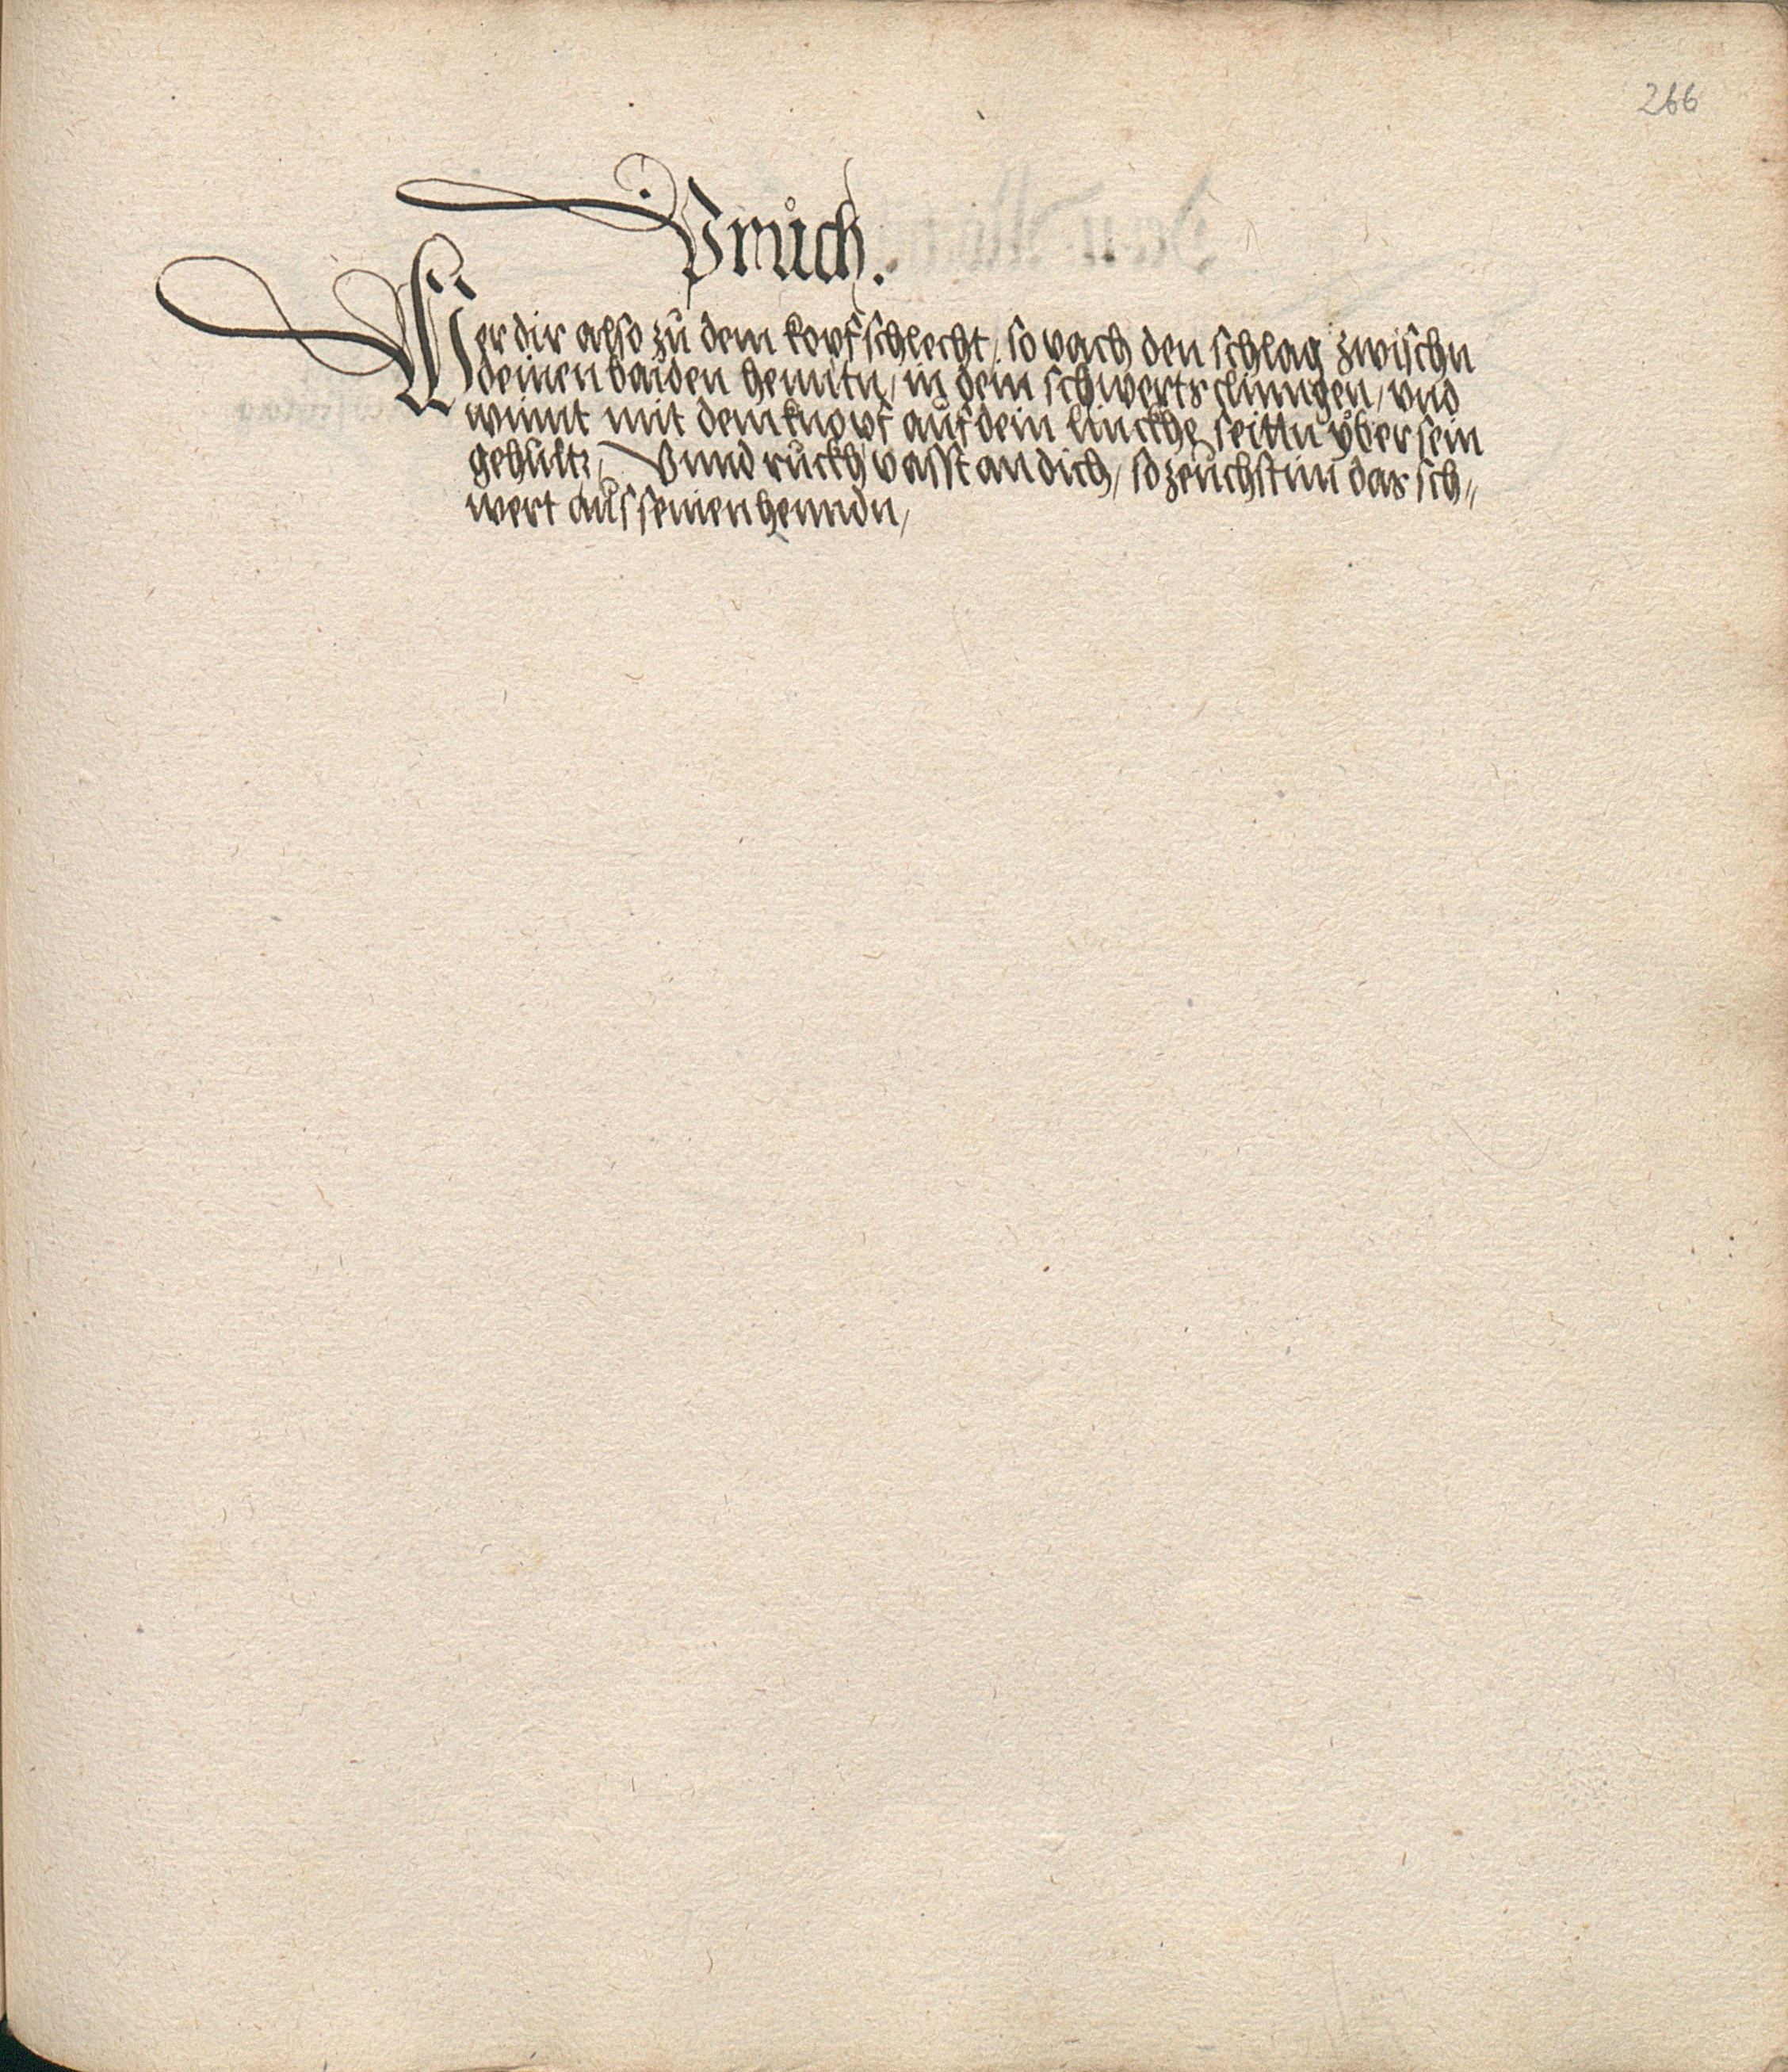 266
Průch.
Wer dir also zů dem kopf schlecht, so vach den schlag zwischn
deinen baiden henntn, in dein schwerts clinngen, vnd
winnt mit dem knopf auf dein linckhe seittn ÿber sein
gehültz, Vnnd ruckh vasst an dich, so zeuchst im das sch„
wert aus seinen henndn,